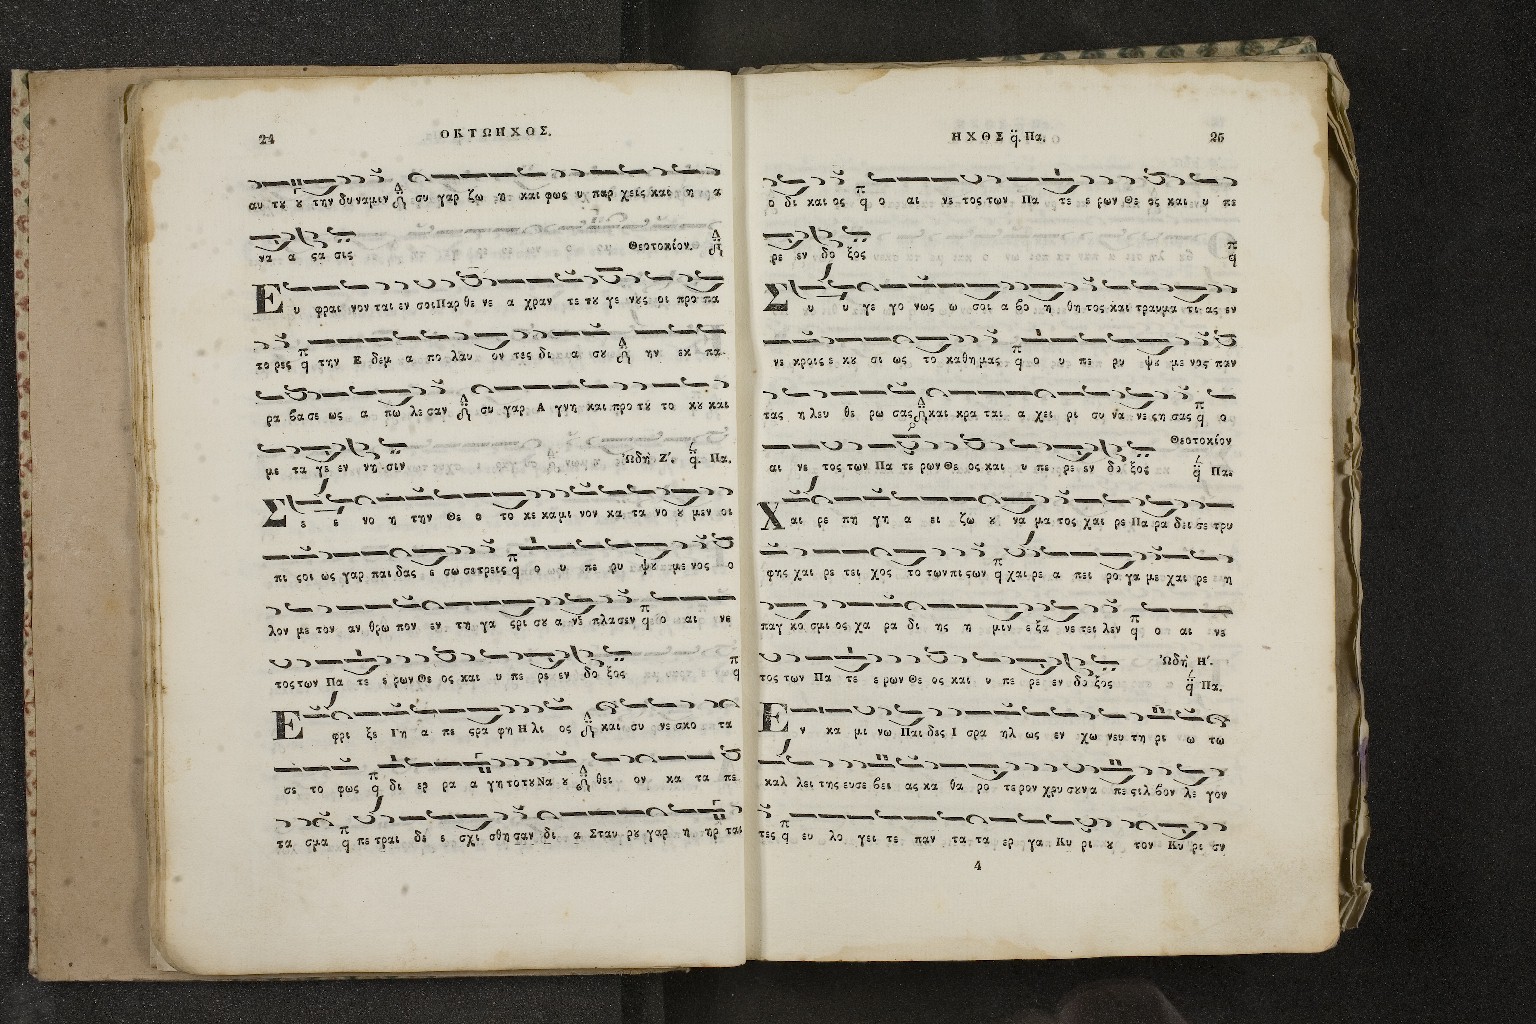 24
ΟΚΤΩΗΧΟΣ.
αυ τȣ ȣ την δυ ναμιν συ γαρ ζω η και φως υ παρ χεις και η α
να α ϛα σις Θεοτοκίον.
Ε υ φραι νον ται εν σοι Παρ θε νε α χραν τε τȣ γε νȣς οι προ πα
το ρες την Ε δεμ α πο λαυ ον τες δι α σȣ ην εκ πα
ρα βα σε ως α πω λε σαν συ γαρ Α γνη και προ τȣ το κȣ και
με τα γε εν νη σιν Ὠδὴ Ζ΄. Πα.
Σ ε ε νο η την Θε ο το κε κα μι νον κα τα νο ȣ μεν οι
πι ϛοι ως γαρ παι δας ε σω σε τρεις ο υ πε ρυ ψȣ με νος ο
λον με τον αν θρω πον εν τη γα ϛρι σȣ α νε πλα σεν ο αι νε
τος των Πα τε ε ρων Θε ος και υ πε ρε εν δο ξος
Ε φρι ξε Γη α πε ϛρα φη Η λι ος και συ νε σκο τα
σε το φως δι ερ ρα α γη το τȣ Να ȣ θει ον κα τα πε
τα σμα πε τραι δε ε σχι σθη σαν δι α Σταυ ρȣ γαρ η ηρ ται
ΗΧΟΣ Πα.
25
ο δι και ος ο αι νε τος των Πα τε ε ρων Θε ος και υ πε
ρε εν δο ξος
Σ υ υ γε γο νως ω σοι α βο η θη τος και τραυμα τι ας εν
νε κροις ε κȣ σι ως το καθ η μας ο υ πε ρυ ψȣ με νος παν
τας η λευ θε ρω σας και κρα ται α χει ρι συ να νε ϛη σας ο
Θεοτοκίον
αι νε τος των Πα τε ρων Θε ος και υ πε ρε εν δο ξος Πα.
Χ αι ρε πη γη α ει ζω ȣ να μα τος χαι ρε Πα ρα δει σε τρυ
φης χαι ρε τει χος το των πι ϛων χαι ρε α πει ρο γα με χαι ρε η
παγ κο σμι ος χα ρα δι ης η μιν ε ξα νε τει λεν ο αι νε
τος των Πα τε ε ρων Θε ος και υ πε ρε εν δο ξος Ὠδὴ Η΄. Πα.
Ε ν κα μι νω Παι δες Ι σρα ηλ ως εν χω νευ τη ρι ω τω
καλ λει της ευσε βει ας κα θα ρο τε ρον χρυ σȣ να πε ϛιλ βον λε γον
τες ευ λο γει τε παν τα τα ερ γα Κυ ρι ȣ τον Κυ ρι ον
4